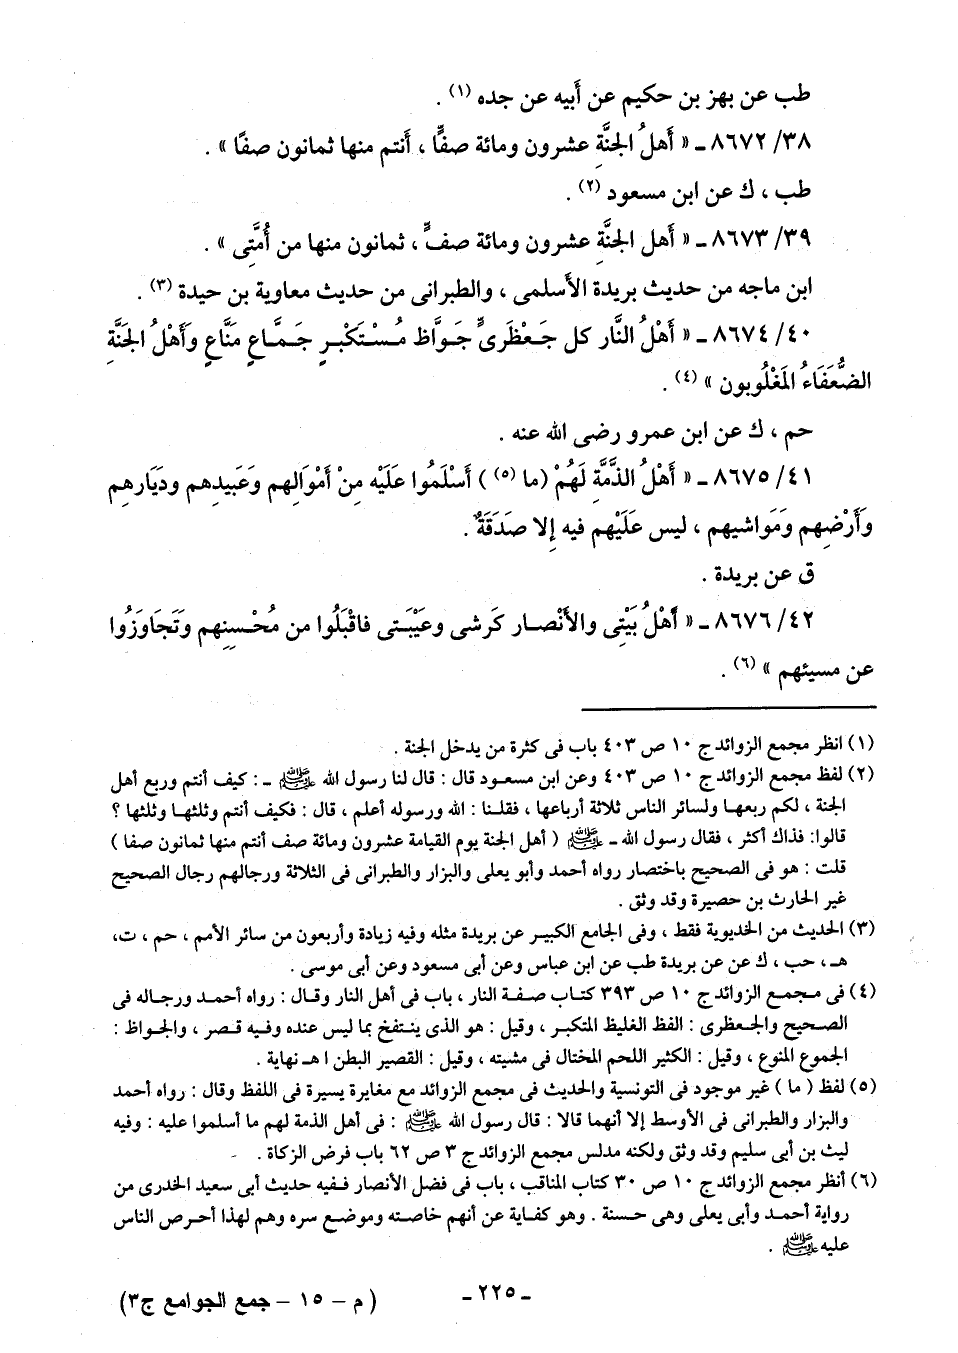 طب عن بهز بن حكيم عن أبيه عن جده (١) .
٨٦٧٢/٣٨ ـ « أهلُ الجنَّةِ عشرون ومائة صفٍّ ، أنتم منها ثمانون صفًا » .
طب ، ك عن ابن مسعود (٢) .
٨٦٧٣/٣٩ ـ « أَهل الجنَّةِ عشرون ومائة صفٍّ ، ثمانون منها من أُمَّتى » .
ابن ماجه من حديث بريدة الأسلمى ، والطبرانى من حديث معاوية بن حيدة (٣) .
٨٦٧٤/٤٠ ـ « أَهلُ النَّار كل جَعْظَرىٍّ جَوَّاظ مُسْتَكْبرٍ جَمَّاعٍ مَنَّاعٍ وَأَهْلُ الجَنَّةِ
الضُّعَفَاءُ المَغْلُوبون » (٤) .
حم ، ك عن ابن عمرو رضى الله عنه .
٨٦٧٥/٤١ ـ « أَهلُ الذِّمَّةِ لَهُمْ (ما (٥)) أَسْلَمُوا عَلَيْه مِنْ أَمْوَالِهم وَعَبِيدِهم ودِيَارِهِم
وَأَرْضِهم وَمَواشيهم ، ليس عَلَيْهم فيه إِلا صَدَقَةٌ .
ق عن بريدة .
٨٦٧٦/٤٢ ـ « أَهلُ بَيْتِى والأَنْصار كَرشى وعَيْبَتى فاقْبَلُوا من مُحْسِنِهم وَتَجَاوَزُوا
عن مسيئهم » (٦) .
(١) انظر مجمع الزوائد ج ١٠ ص ٤٠٣ باب فى كثرة من يدخل الجنة .
(٢) لفظ مجمع الزوائد ج ١٠ ص ٤٠٣ وعن ابن مسعود قال : قال لنا رسول الله ﷺ ـ : كيف أنتم وربع أهل
الجنة ، لكم ربعها ولسائر الناس ثلاثة أرباعها ، فقلنا : الله ورسوله أعلم ، قال : فكيف أنتم وثلثها وثلثها ؟
قالوا: فذاك أكثر ، فقال رسول الله ـ ﷺ ( أهل الجنة يوم القيامة عشرون ومائة صف أنتم منها ثمانون صفا )
قلت : هو فى الصحيح باختصار رواه أحمد وأبو يعلى والبزار والطبرانى فى الثلاثة ورجالهم رجال الصحيح
غير الحارث بن حصيرة وقد وثق .
(٣) الحديث من الخديوية فقط ، وفى الجامع الكبير عن بريدة مثله وفيه زيادة وأربعون من سائر الأمم ، حم ، ت،
هـ ، حب ، ك عن عن بريدة طب عن ابن عباس وعن أبى مسعود وعن أبى موسى .
(٤) فى مجمع الزوائد ج ١٠ ص ٣٩٣ كتاب صفة النار ، باب فى أهل النار وقال : رواه أحمد ورجاله فى
الصحيح والجعظرى : الفظ الغليظ المتكبر ، وقيل : هو الذى ينتفخ بما ليس عنده وفيه قصر ، والجواظ :
الجموع المنوع ، وقيل : الكثير اللحم المختال فى مشيته ، وقيل : القصير البطن ا هـ نهاية .
(٥) لفظ ( ما ) غير موجود فى التونسية والحديث فى مجمع الزوائد مع مغايرة يسيرة فى اللفظ وقال : رواه أحمد
والبزار والطبرانى فى الأوسط إلا أنهما قالا : قال رسول الله ﷺ : فى أهل الذمة لهم ما أسلموا عليه : وفيه
ليث بن أبى سليم وقد وثق ولكنه مدلس مجمع الزوائد ج ٣ ص ٦٢ باب فرض الزكاة .
(٦) أنظر مجمع الزوائد ج ١٠ ص ٣٠ كتاب المناقب ، باب فى فضل الأنصار ففيه حديث أبى سعيد الخدرى من
رواية أحمد وأبى يعلى وهى حسنة . وهو كفاية عن أنهم خاصته وموضع سره وهم لهذا أحرص الناس
عليه ﷺ .
ـ ٢٢٥ ـ
(م - ١٥ - جمع الجوامع ج٣)